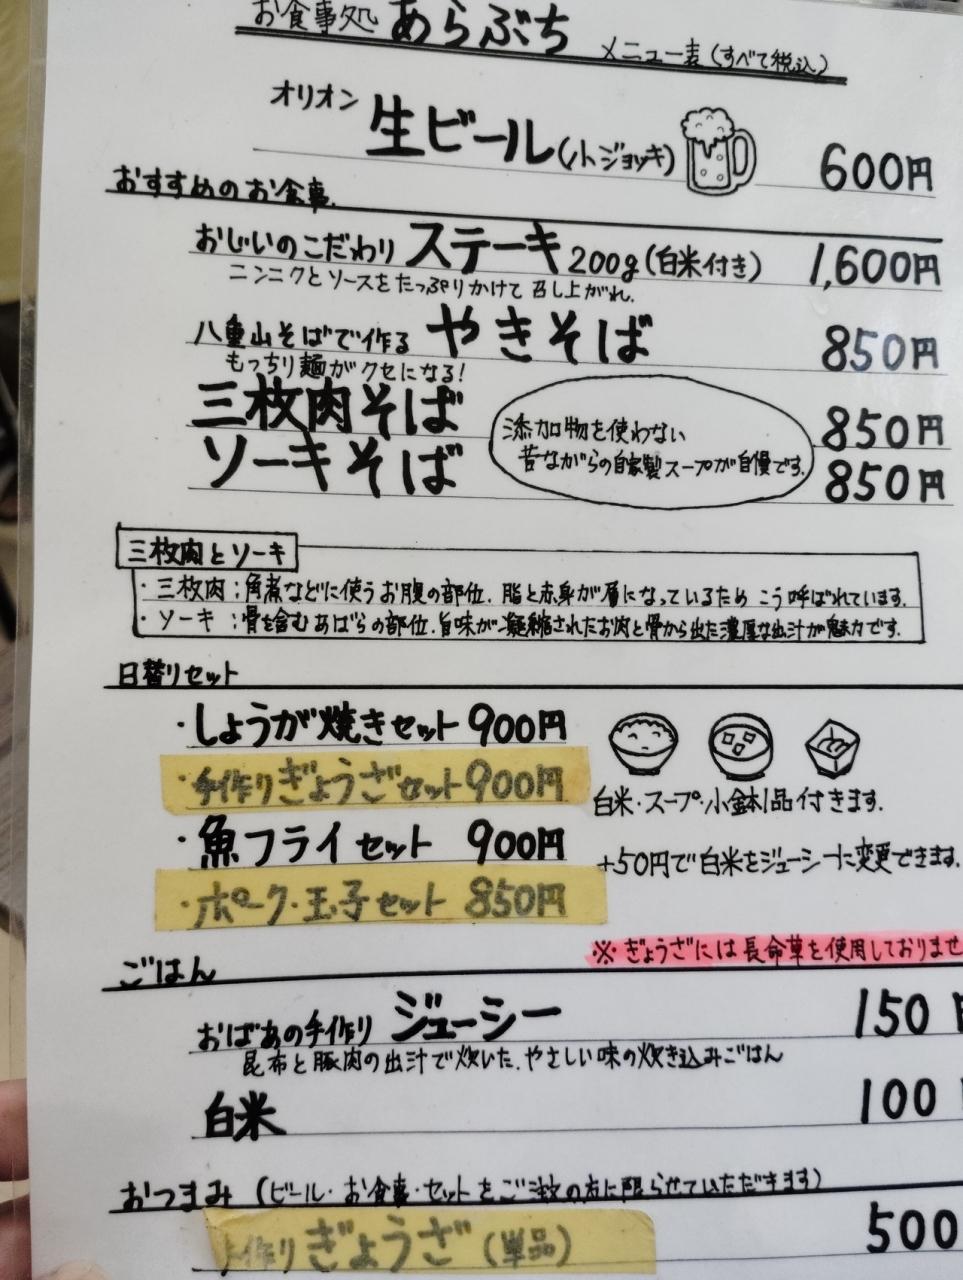 お食事処 あらぶち メニュー表(すべて税込)
オリオン 生ビール(小ジョッキ) 600円
おすすめのお食事
おじいのこだわり ステーキ 200g(白米付き) 1,600円
ニンニクとソースをたっぷりかけて召し上がれ。
八重山そばで作る やきそば 850円
もっちり麺がクセになる!
三枚肉そば 850円
ソーキそば 850円
添加物を使わない
昔ながらの自家製スープが自慢です。
三枚肉とソーキ
・三枚肉:角煮などに使うお腹の部位。脂と赤身が層になっているためこう呼ばれています。
・ソーキ:骨を含むあばらの部位。旨味が凝縮されたお肉と骨から出た濃厚な出汁が魅力です。
日替りセット
・しょうが焼きセット 900円
・手作りぎょうざセット 900円
・魚フライセット 900円
・ポーク・玉子セット 850円
白米・スープ・小鉢1品付きます。
+50円で白米をジューシーに変更できます。
※ぎょうざには長命草を使用しておりませ
ごはん
おばあの手作り ジューシー 150円
昆布と豚肉の出汁で炊いた、やさしい味の炊き込みごはん
白米 100
おつまみ (ビール・お食事・セットをご注文の方に限らせていただきます)
手作りぎょうざ(単品) 500